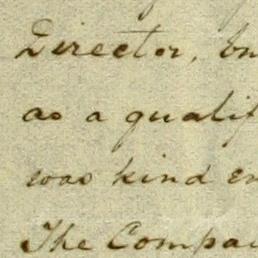 Director, bu
as a qualif
was kind en
The Compa